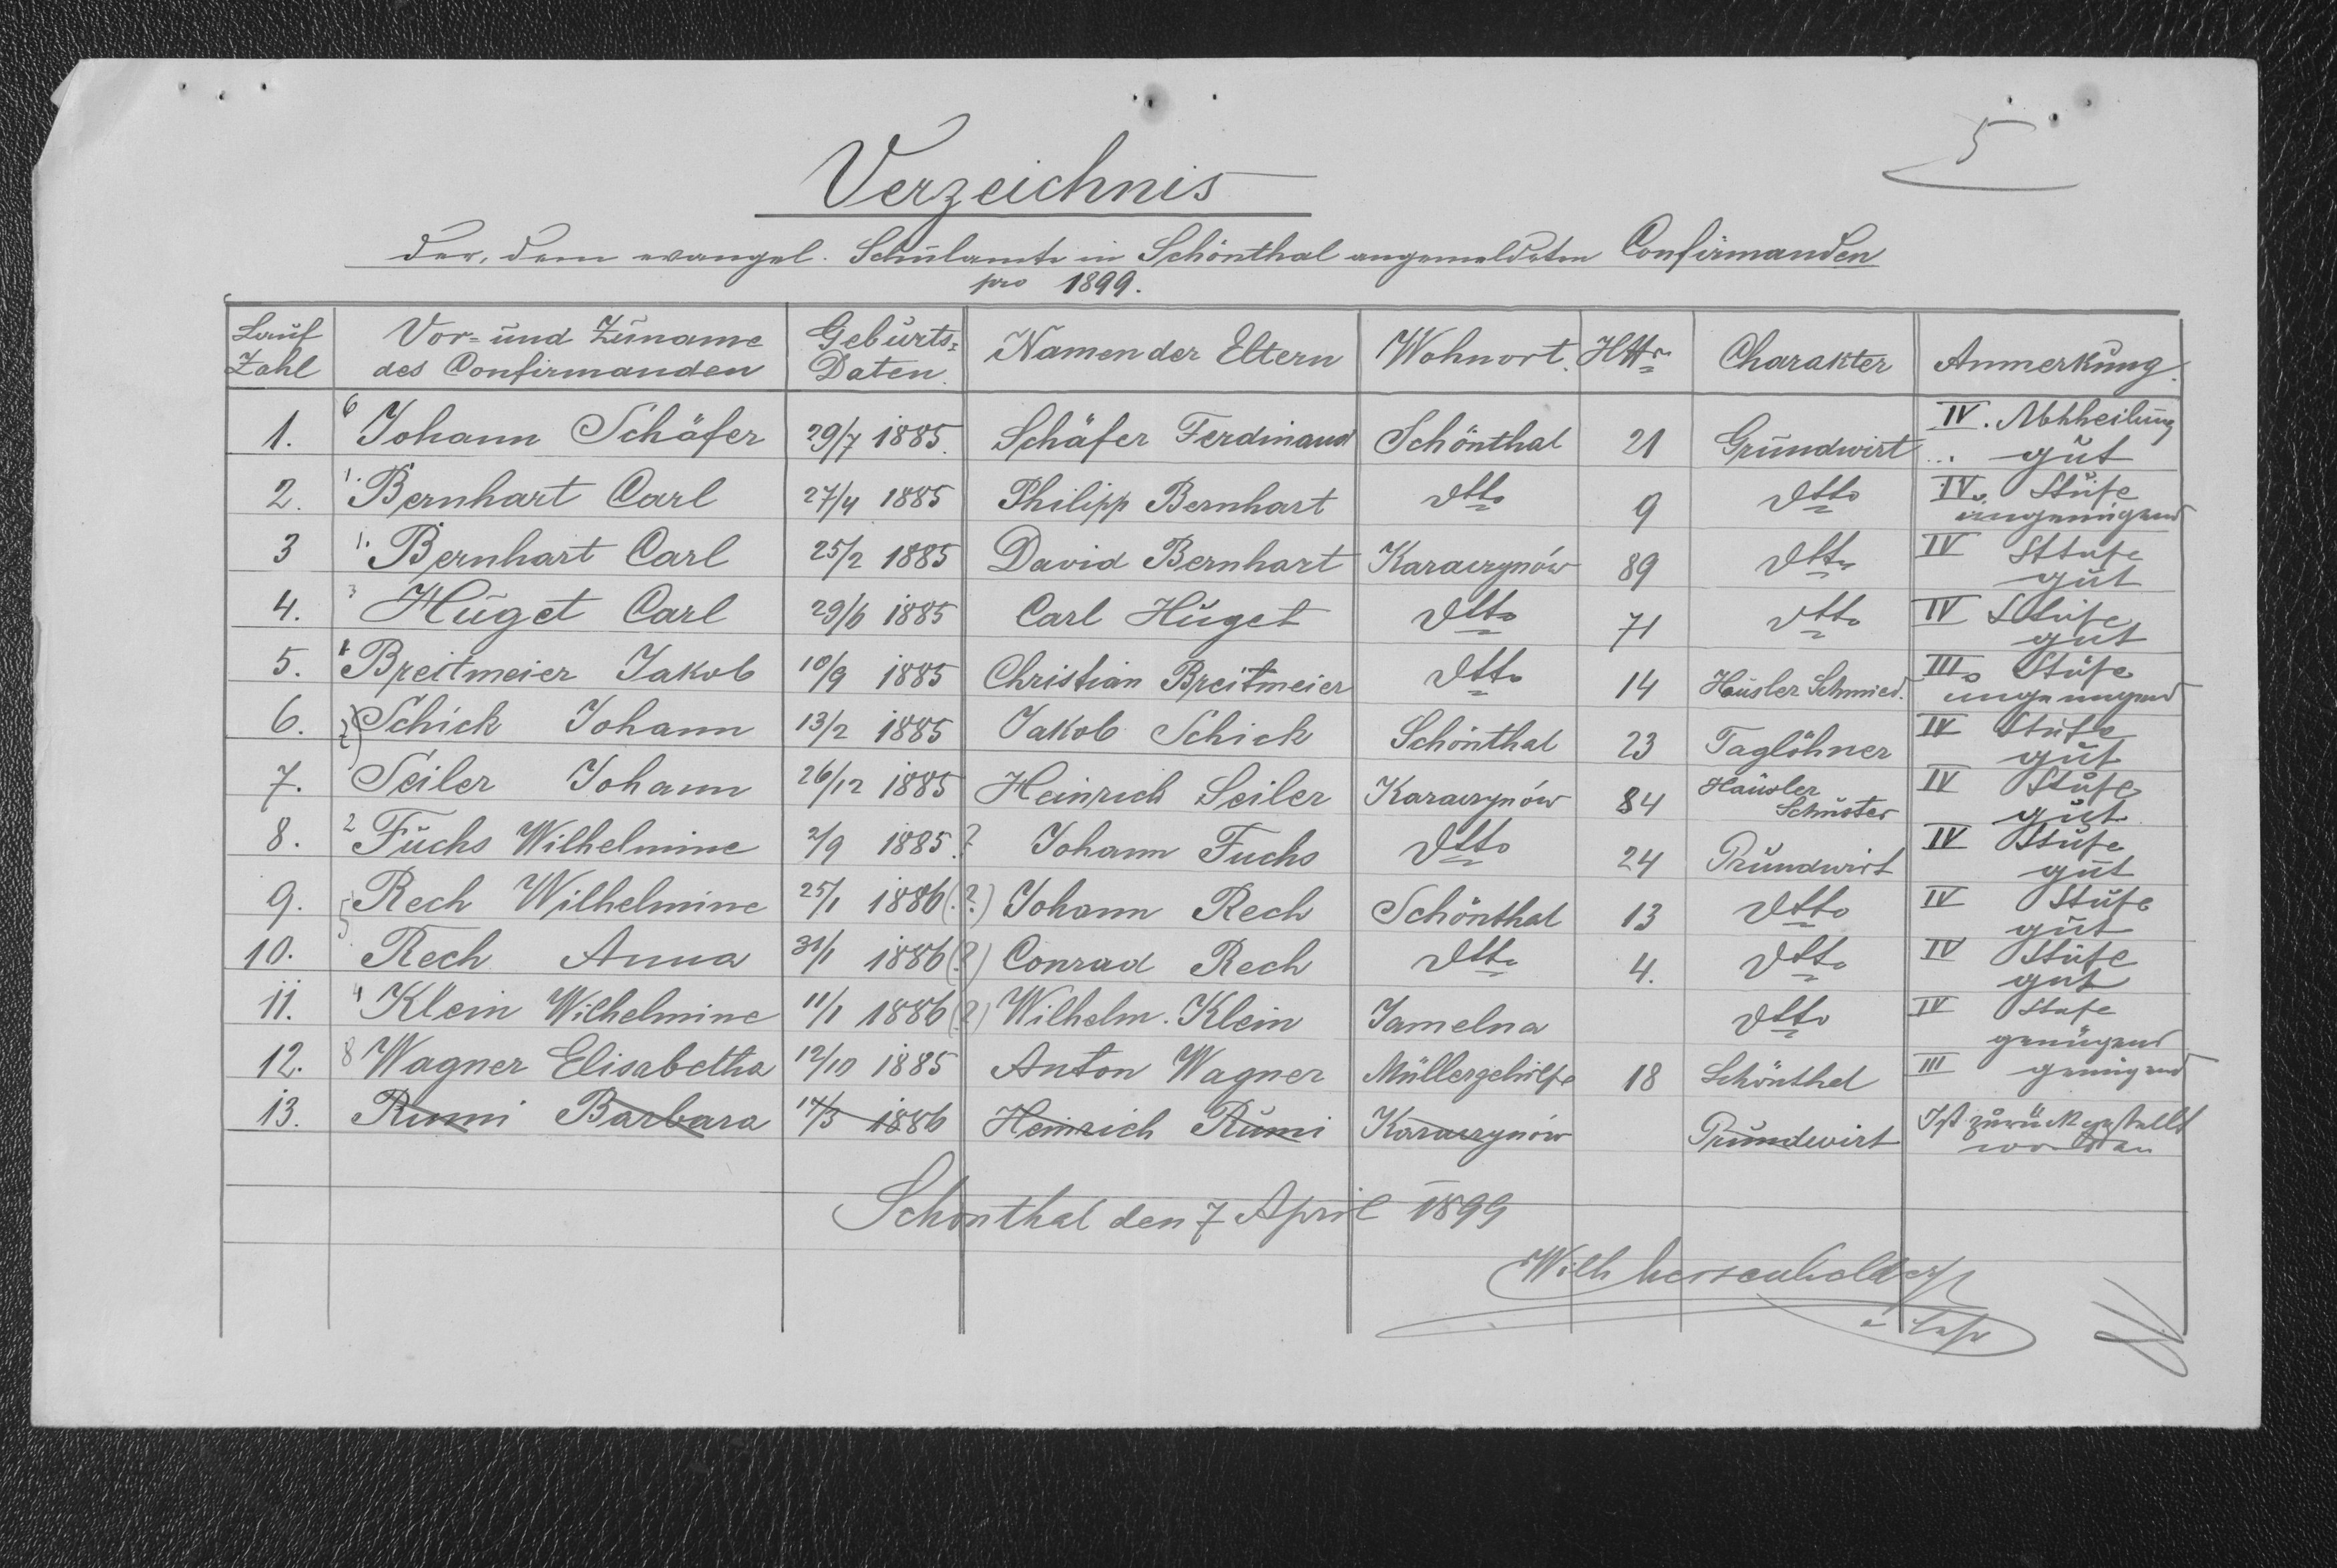 5
Verzeichnis
der, dem evangel. Schulamte in Schönthal angemeldeten Confirmanden
pro 1899.
Lauf Zahl | Vor- und Zuname des Confirmanden | Geburts-Daten. | Namen der Eltern | Wohnort. | HNr. | Charakter | Anmerkung.
1. | 6 Johann Schäfer | 29/7 1885. | Schäfer Ferdinand | Schönthal | 21 | Grundwirt | IV. Abtheilung gut
2. | 1. Bernhart Carl | 27/4 1885 | Philipp Bernhart | dtto | 9 | dtto | IV. Stufe ungenügend
3 | 1. Bernhart Carl | 25/2 1885 | David Bernhart | Karaczynów | 89 | dtto | IV Sttufe gut
4. | 3 Huget Carl | 29/6 1885 | Carl Huget | dtto | 71 | dtto | IV Stufe gut
5. | Breitmeier Jakob | 10/9 1885 | Christian Breitmeier | dtto | 14 | Häusler Schmied. | III. Stufe ungenügend
6. | Schick Johann | 13/2 1885 | Jakob Schick | Schönthal | 23 | Taglöhner | IV Stufe gut
7. | Seiler Johann | 26/12 1885 | Heinrich Seiler | Karaczynów | 84 | Häusler Schuster | IV Stufe gut
8. | 2 Fuchs Wilhelmine | 2/9 1885.? | Johann Fuchs | dtto | 24 | Grundwirt | IV Stufe gut
9. | 5 Rech Wilhelmine | 25/1 1886(?) | Johann Rech | Schönthal | 13 | dtto | IV Stufe gut
10. | Rech Anna | 31/1 1886(?) | Conrad Rech | dtto | 4. | dtto | IV Stufe gut
11. | 4 Klein Wilhelmine | 11/1 1886(?) | Wilhelm. Klein | Jamelna | dtto | IV Stufe genügend
12. | 8 Wagner Elisabetha | 12/10 1885 | Anton Wagner | Müllergehilfe | 18 | Schönthal | III genügend
13. | Rumi Barbara | 17/3 1886 | Heinrich Rumi | Karaczynów | Grundwirt | Ist zurückgestellt worden
Schönthal den 7 April 1899
Wilh